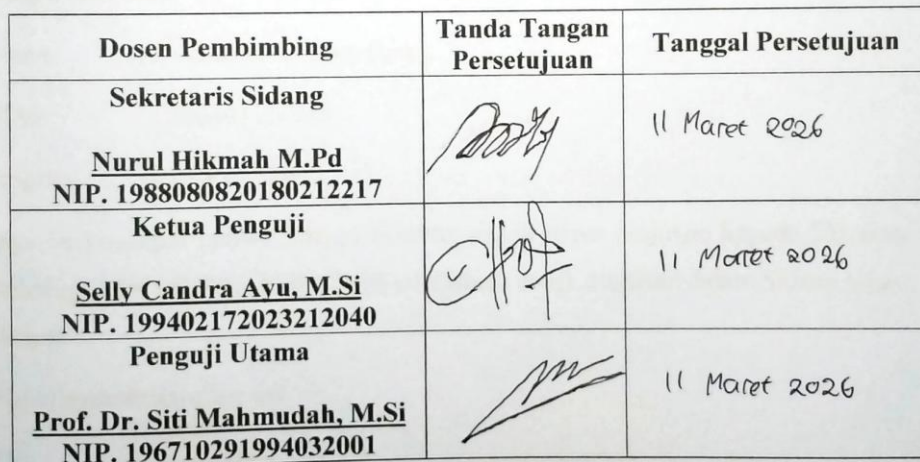 Dosen Pembimbing
Tanda Tangan
Persetujuan
Tanggal Persetujuan
Sekretaris Sidang
Nurul Hikmah M.Pd
NIP. 1988080820180212217
11 Maret 2026
Ketua Penguji
Selly Candra Ayu, M.Si
NIP. 199402172023212040
11 Maret 2026
Penguji Utama
Prof. Dr. Siti Mahmudah, M.Si
NIP. 196710291994032001
11 Maret 2026